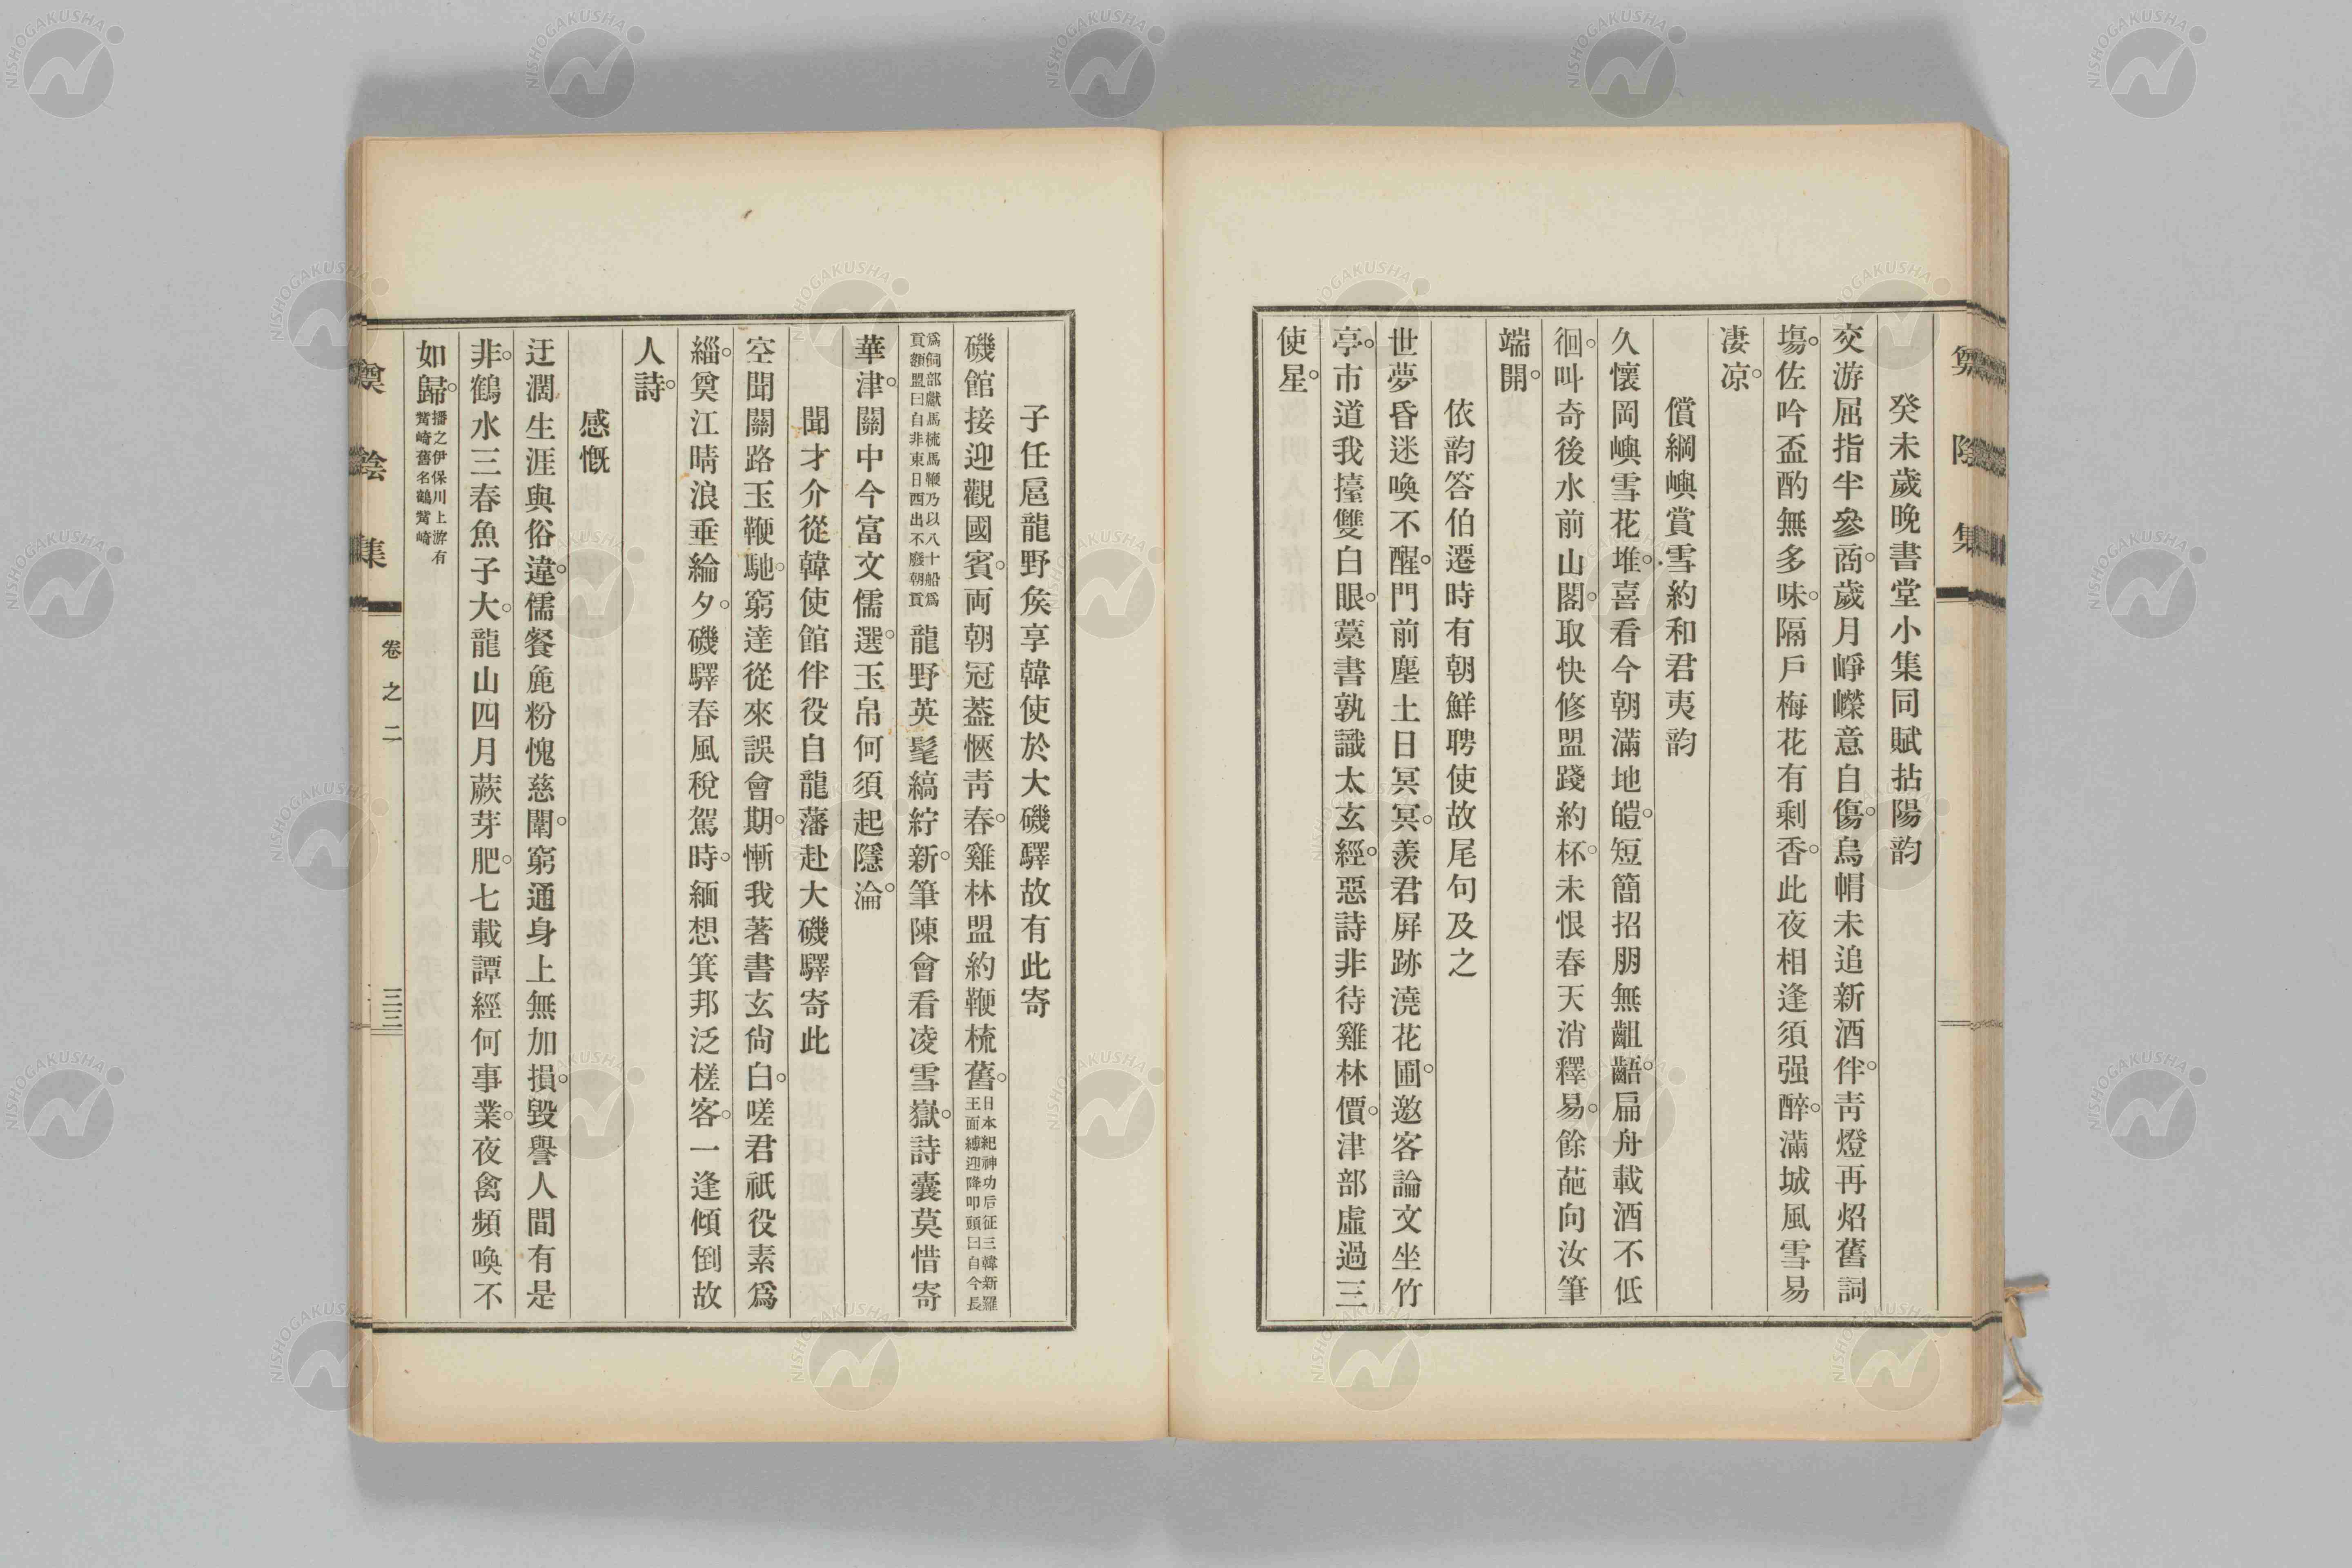 癸未歲晚書堂小集同賦拈陽韵
交游屈指半參商。歲月崢嶸意自傷。烏帽未追新酒伴。靑燈再炤舊詞
塲。佐吟盃酌無多味。隔戶梅花有剩香。此夜相逢須强醉。滿城風雪易
凄凉。
償綱嶼賞雪約和君夷韵
久懷岡嶼雪花堆。喜看今朝滿地皚。短簡招朋無齟齬。扁舟載酒不低
徊。叫奇後水前山閣。取快修盟踐約杯。未恨春天消釋易。餘葩向汝筆
端開。
依韵答伯遷時有朝鮮聘使故尾句及之
世夢昏迷喚不醒。門前塵土日冥冥。羨君屛跡澆花圃。邀客論文坐竹
亭。市道我擡雙白眼。藁書孰識太玄經。惡詩非待雞林價。津部虛過三
使星。
子任扈龍野矦享韓使於大磯驛故有此寄
磯館接迎觀國賓。両朝冠蓋愜靑春。雞林盟約鞭梳舊。日本紀神功后征三韓新羅
王面縛迎降叩頭曰自今長
爲飼部獻馬梳馬鞭乃以八十船爲
貢額盟曰自非東日西出不廢朝貢
龍野英髦縞紵新。筆陳會看凌雪嶽。詩囊莫惜寄
華津。關中今富文儒選。玉帛何須起隱淪。
聞才介從韓使館伴役自龍藩赴大磯驛寄此
空聞關路玉鞭馳。窮達從來誤會期。慚我著書玄尙白。嗟君祇役素爲
緇。奠江晴浪垂綸夕。磯驛春風稅駕時。緬想箕邦泛槎客。一逢傾倒故
人詩。
感慨
迂濶生涯與俗違。儒餐麁粉愧慈闈。窮通身上無加損。毀譽人間有是
非。鶴水三春魚子大。龍山四月蕨芽肥。七載譚經何事業。夜禽頻喚不
如歸。播之伊保川上游有
觜崎舊名鶴觜崎
卷之二
三三
NISHOGAKUSHA